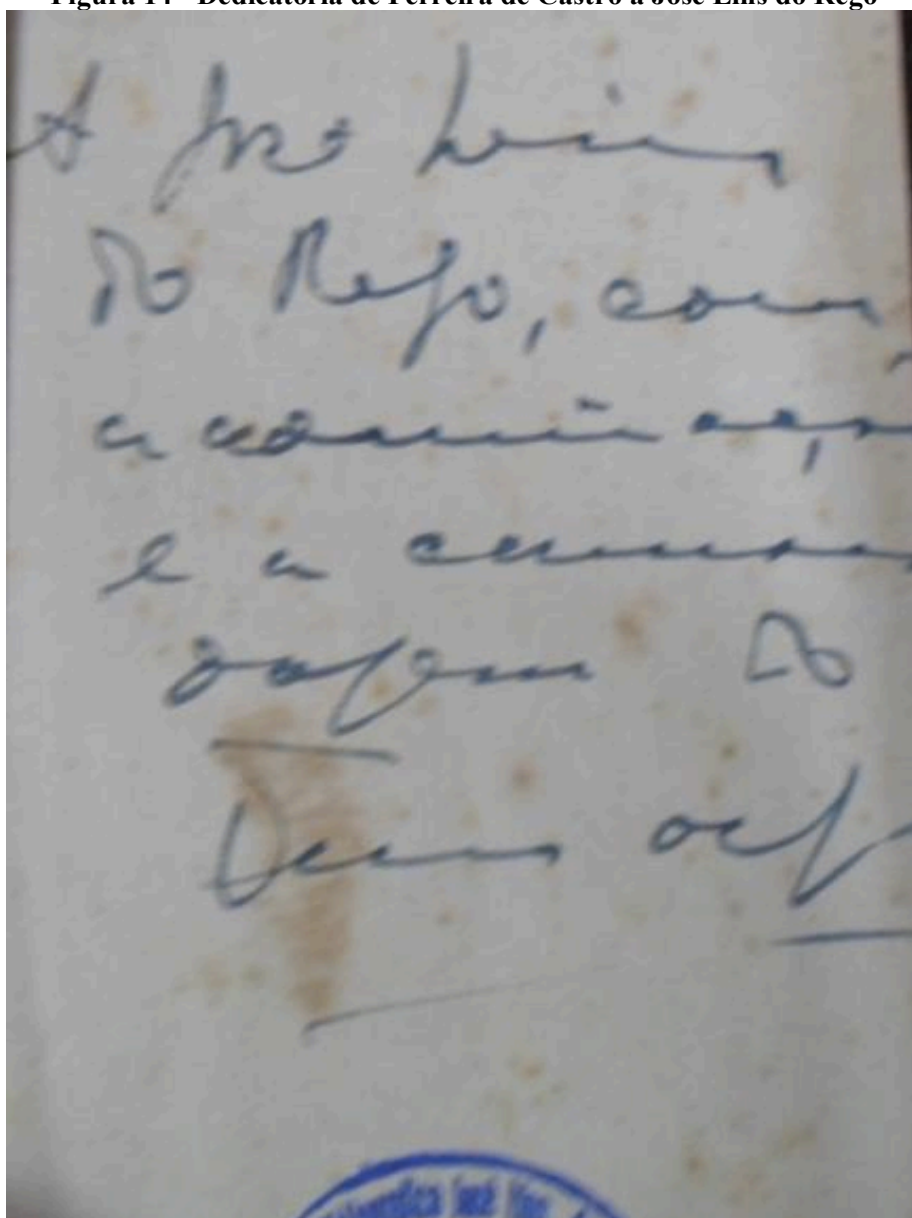 Figura 14 - Dedicatória de Ferreira de Castro a José Lins do Rego
A José Lins
do Rego, com
a admiraçã
e a camara
dagem do
José Lins